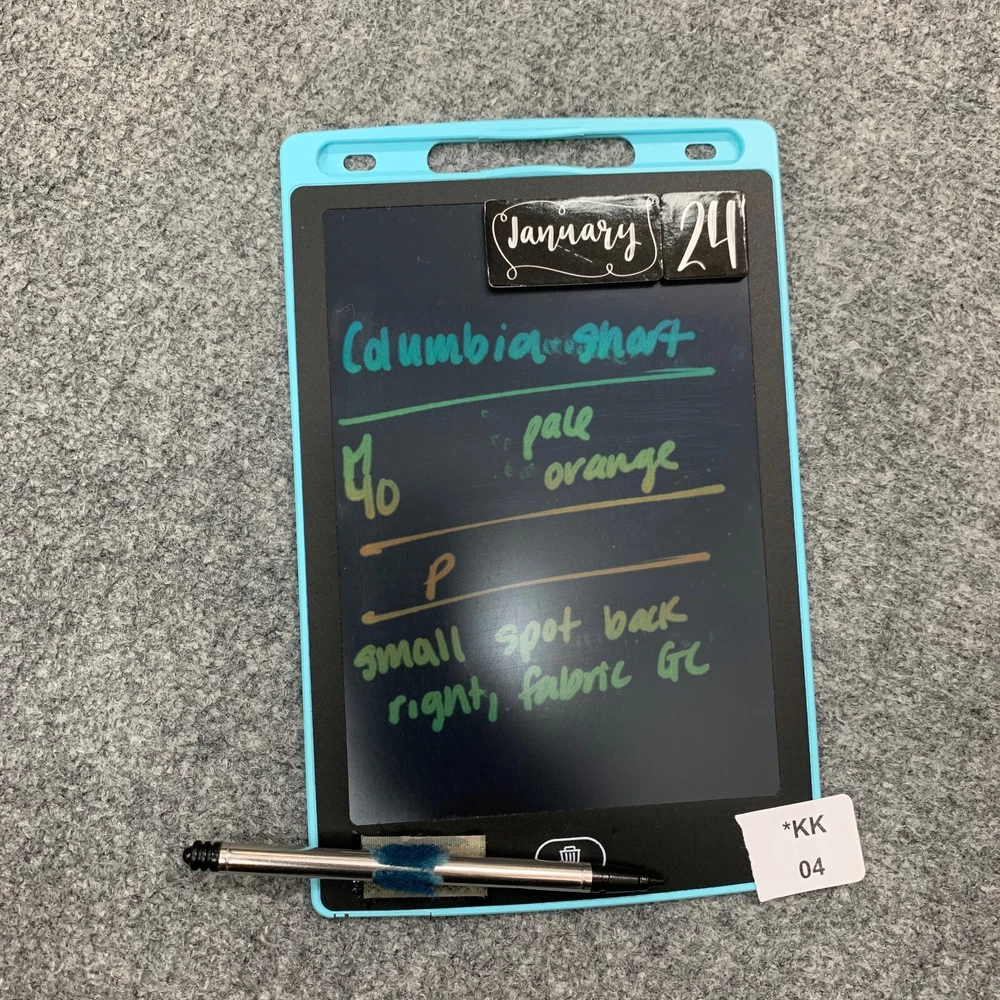 January 24
Columbia short
M
40
pale
orange
P
small spot back
right, fabric GC
*KK
04